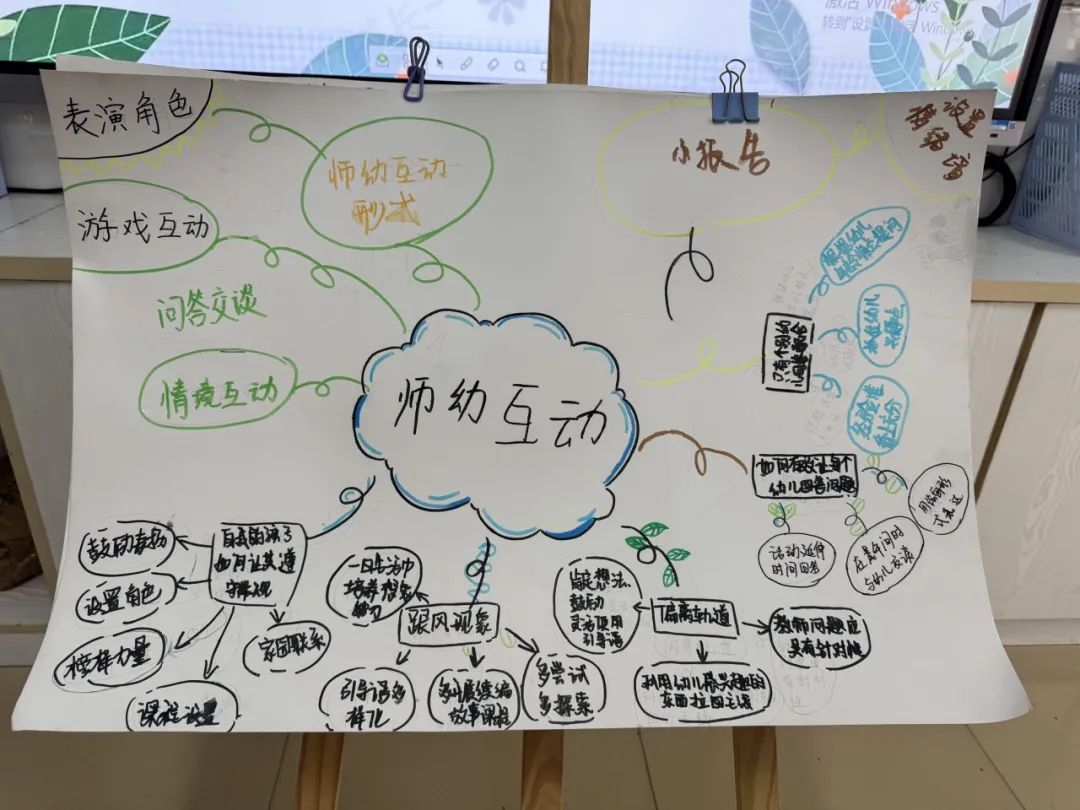 激活 Windows
转到"设置
表演角色
师幼互动
形式
游戏互动
问答交谈
情境互动
小报告
设置
师幼互动
根据幼儿
抓住幼儿
经验准
如何有效让每个
幼儿回答问题
用绘画形
式表达
活动延伸
时间回答
在其余时间时
与幼儿交谈
自我的孩子
如何让其遵
守常规
鼓励表扬
设置角色
榜样力量
课程设置
家园联系
跟风现象
一日活动中
培养想象
能力
引导语多
样化
多开展续编
故事课程
多尝试
多探索
偏离轨道
肯定想法
鼓励
灵活使用
引导语
教师问题应
具有针对性
利用幼儿感兴趣的
东西拉回主课